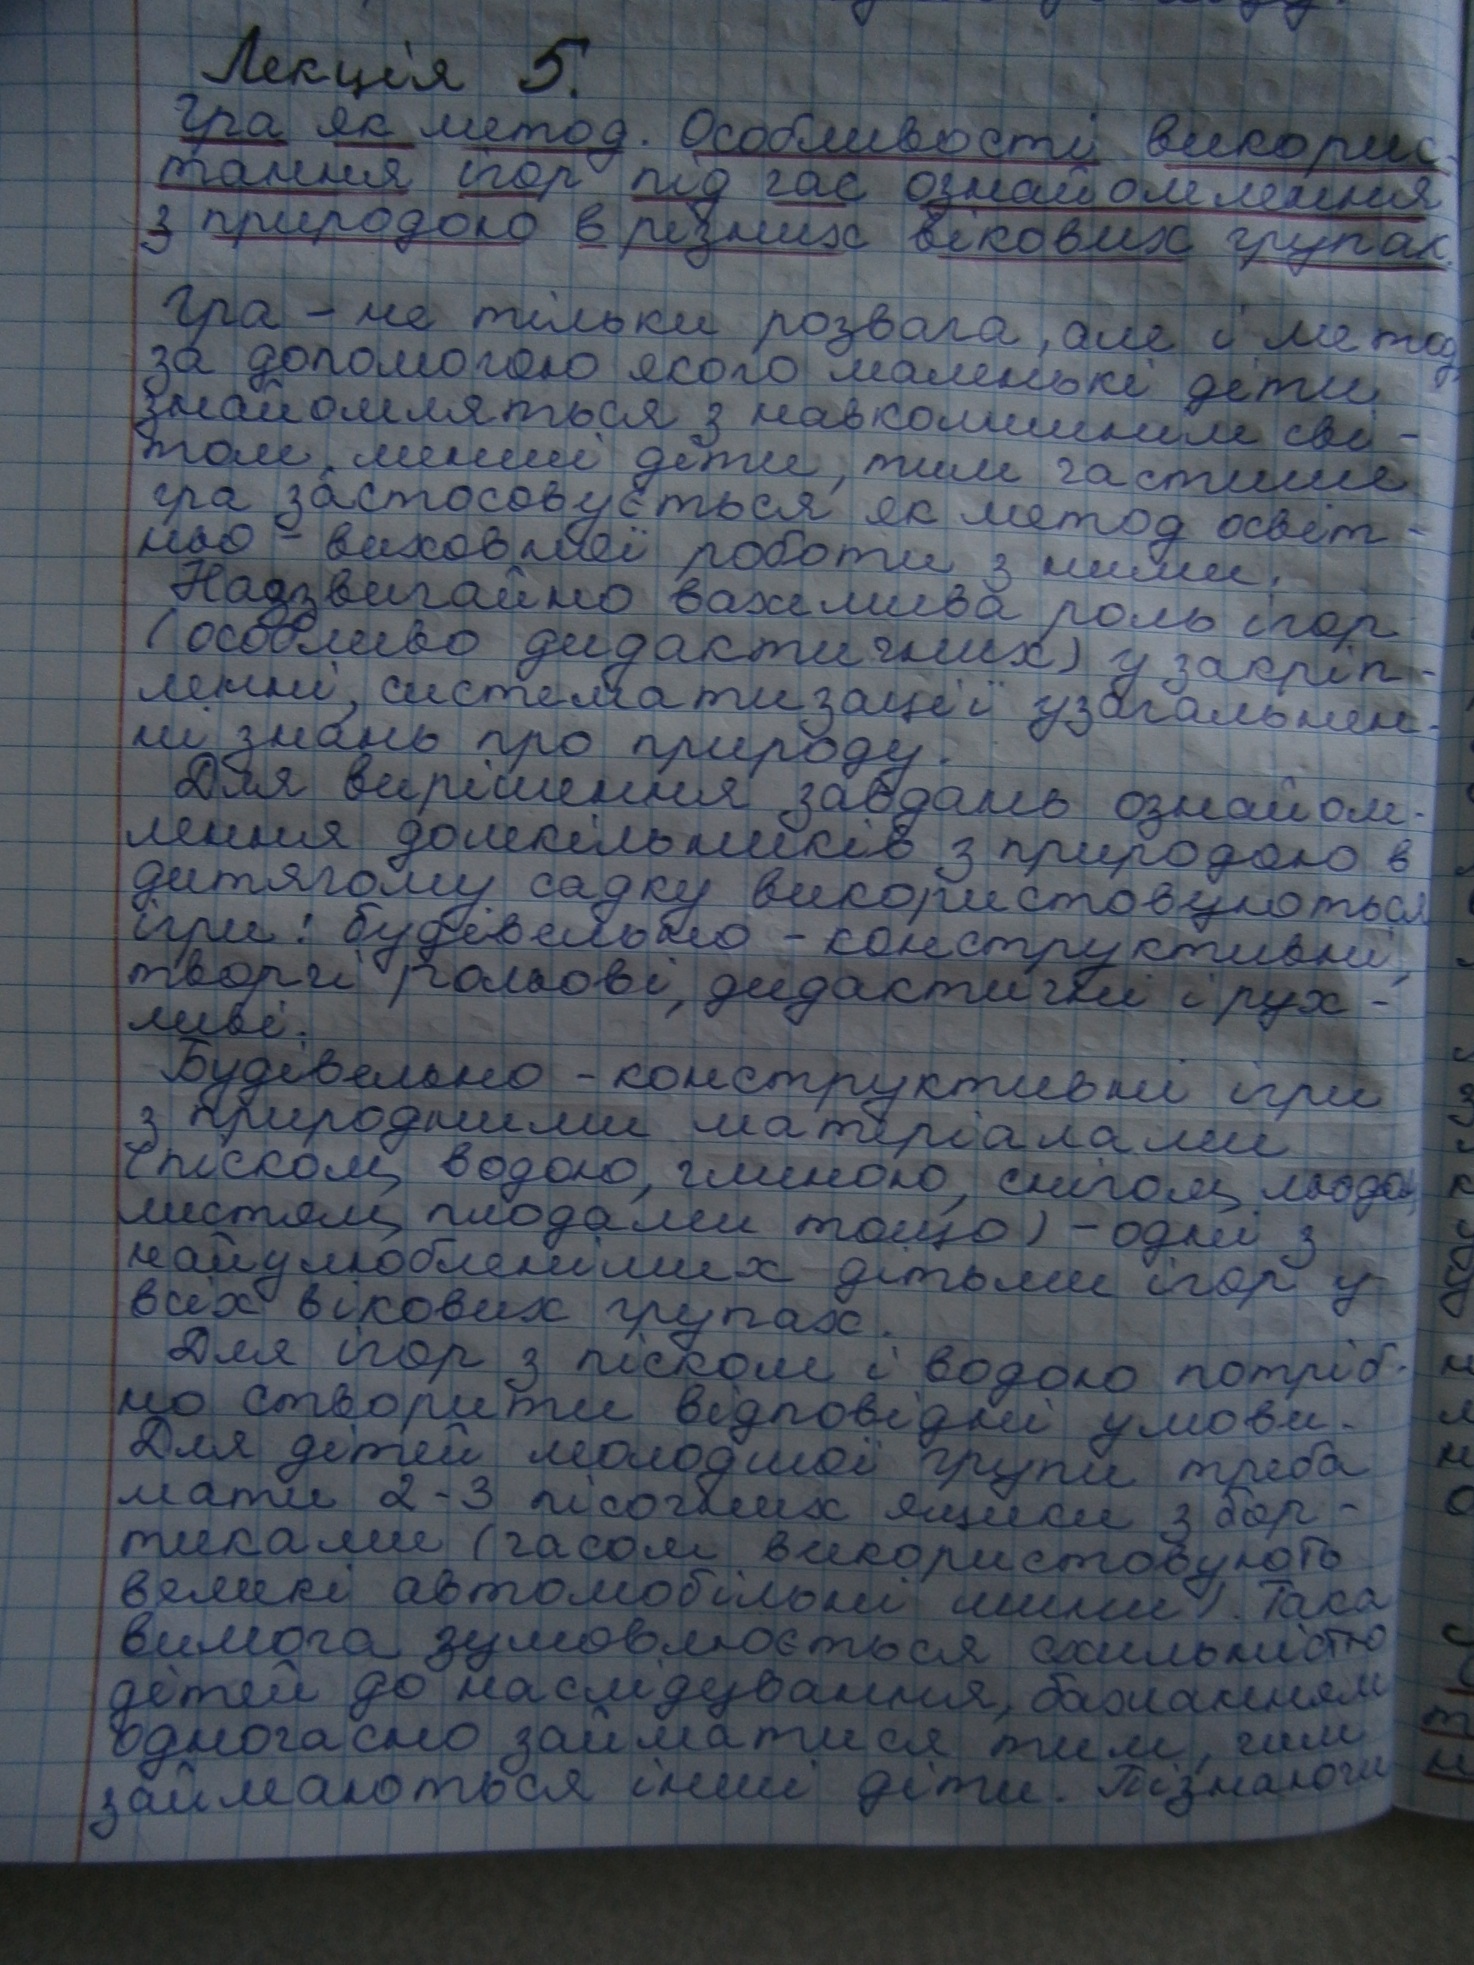 Лекція 5.
Гра як метод. Особливості викорис-
тання ігор під час ознайомлення
з природою в різних вікових групах.
Гра - не тільки розвага, але і метод,
за допомогою якого маленькі діти
знайомляться з навколишнім сві-
том, менші діти, тим частіше
гра застосовується як метод освіт-
ньо - виховної роботи з ними.
Надзвичайно важлива роль ігор
(особливо дидактичних) у закріп-
ленні, систематизації і узагальнен-
ні знань про природу.
Для вирішення завдань ознайом-
лення дошкільників з природою в
дитячому садку використовуються
ігри: будівельно - конструктивні,
творчі рольові, дидактичні і рух-
ливі.
Будівельно - конструктивні ігри
з природними матеріалами
(піском, водою, глиною, снігом, льодом,
листям, плодами тощо) - одні з
найулюбленіших дітьми ігор у
всіх вікових групах.
Для ігор з піском і водою потріб-
но створити відповідні умови.
Для дітей молодшої групи треба
мати 2-3 пісочних ящики з бор-
тиками (часом використовують
великі автомобільні шини). Така
вимога зумовлюється схильністю
дітей до наслідування, бажанням
одночасно займатися тим, чим
займаються інші діти. Пізнаючи